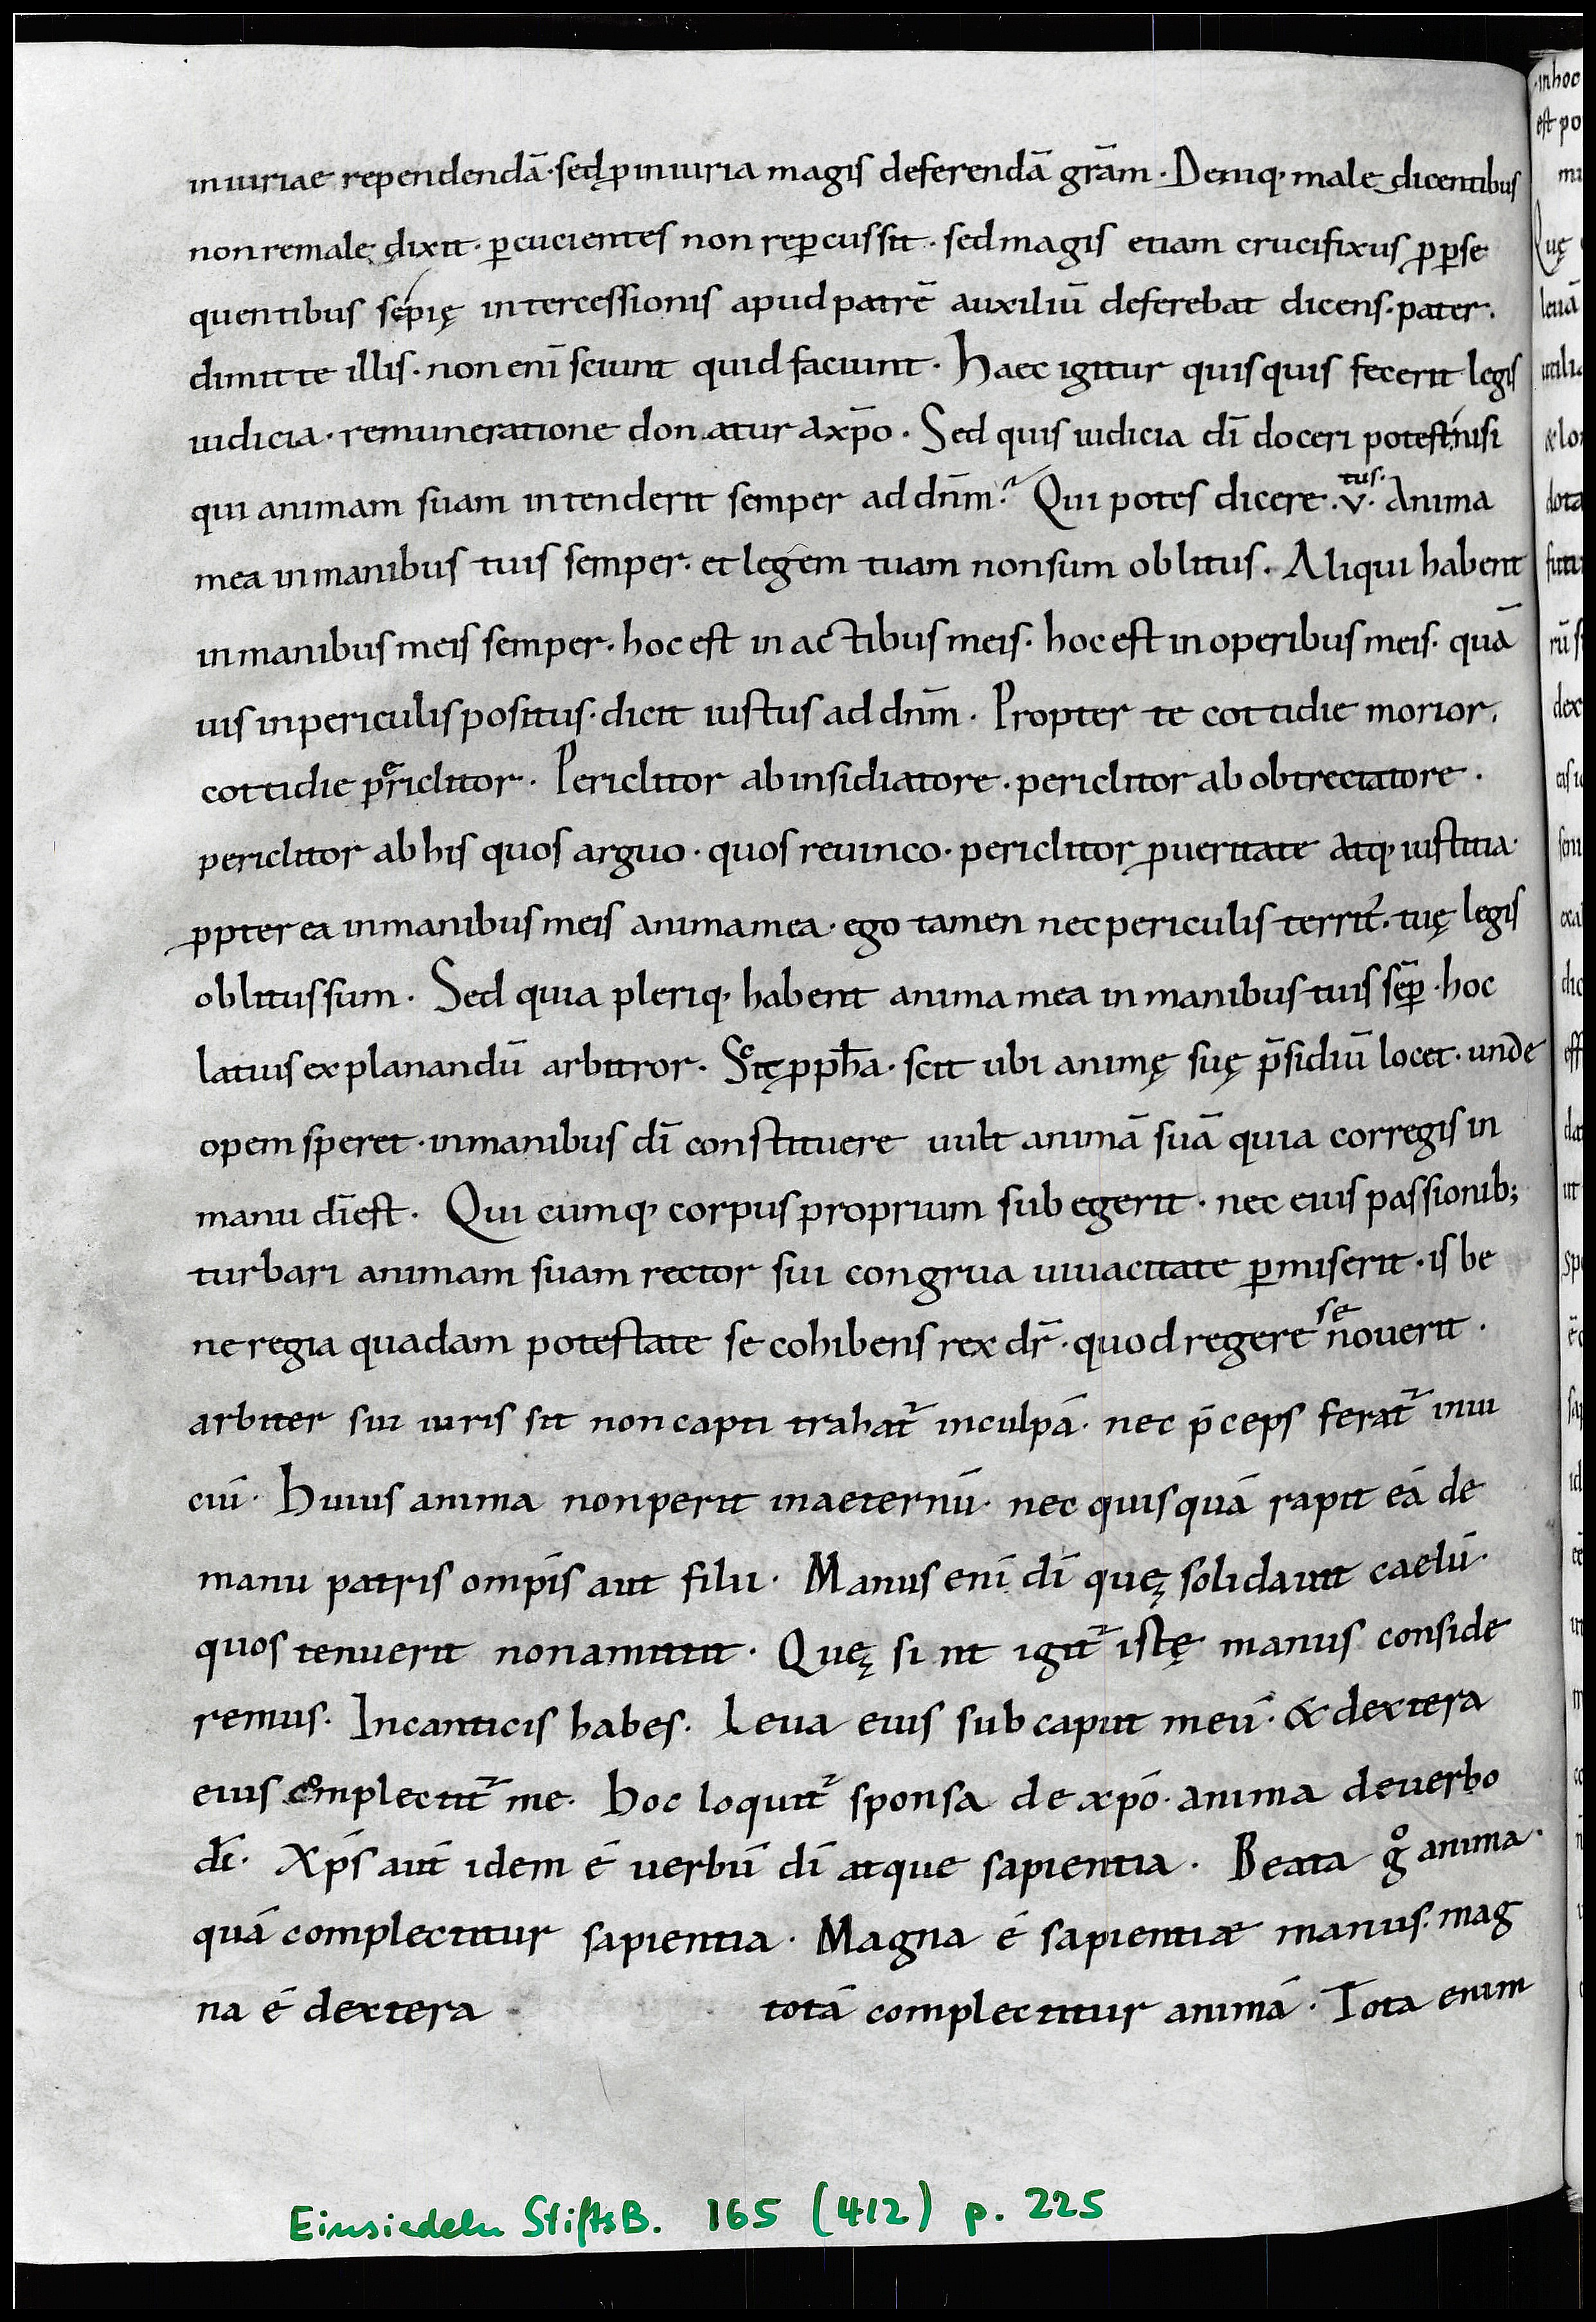 iniuriae rependendā· sed ꝓ iniuria magis deferendā grām· Deniq; male dicentibus
non remale dixit· ꝑcucientes non reꝑcussit· sed magis etiam crucifixus ꝓ ꝑse
quentibus se pię intercessionis apud patrē auxiliū deferebat dicens· pater·
dimitte illis· non enī sciunt quid faciunt· Haec igitur quisquis fecerit legis
iudicia· remuneratione donatur a xp̄o· Sed quis iudicia dī doceri potest nisi
qui animam suam intenderit semper ad dn̄m? Qui potes dicere· v tus· Anima
mea in manibus tuis semper· et legem tuam non sum oblitus· Aliqui habent
in manibus meis semper· hoc est in actibus meis· hoc est in operibus meis· quā
uis in periculis positus· dicit iustus ad dn̄m· Propter te cottidie morior·
cottidie periclitor· Periclitor ab insidiatore· periclitor ab obtrectatore·
periclitor ab his quos arguo· quos reuinco· periclitor ꝓ ueritate atq; iustitia·
ꝓpterea in manibus meis anima mea· ego tamen nec periculis territ᷒· tuę legis
oblitus sum· Sed quia pleriq; habent anima mea in manibus tuis sēꝑ· hoc
latius explanandū arbitror· Sctę ꝓpħa· scit ubi animę suę p̄sidiū locet· unde
opem speret· in manibus dī constituere uult animā suā quia cor regis in
manu dī est· Qui cumq; corpus proprium subegerit· nec eius passionib;
turbari animam suam rector sui congrua uiuacitate ꝑmiserit· is be
ne regia quadam potestate se cohibens rex dr̄· quod regere se nouerit·
arbiter sui iuris sit non capti trahat᷑ in culpā· nec p̄ceps ferat᷑ in ui
ciū· Huius anima non perit in aeternū· nec quisquā rapit eā de
manu patris omp̄is aut filii· Manus enī dī quę solidauit caelū·
quos tenuerit non amittit· Quę sint igit᷑ istę manus conside
remus· In canticis habes· Leua eius sub caput meū· & dextera
eius complectit᷑ me· Hoc loquit᷑ sponsa de xp̄o· anima de uerbo
dī· Xp̄s aut̄ idem ē uerbū dī atque sapientia· Beata gͦ anima·
quā complectitur sapientia· Magna ē sapientiæ manus· mag
na ē dextera totā complectitur animā· Tota enim
Einsiedeln StiftsB. 165 (412) p. 225